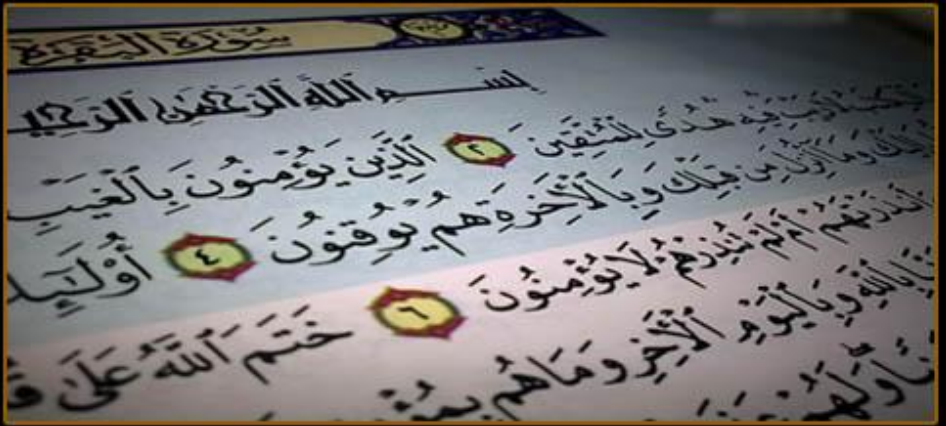 سُورَةُ البَقَرَةِ
بِسْمِ ٱللَّهِ ٱلرَّحْمَٰنِ ٱلرَّحِي
لَا رَيْبَ فِيهِ هُدًى لِّلْمُتَّقِينَ ٢ ٱلَّذِينَ يُؤْمِنُونَ بِٱلْغَيْبِ
وَمَآ أُنزِلَ مِن قَبْلِكَ وَبِٱلْأَخِرَةِ هُمْ يُوقِنُونَ ٤ أُوْلَٰٓئِكَ
ءَأَنذَرْتَهُمْ أَمْ لَمْ تُنذِرْهُمْ لَا يُؤْمِنُونَ ٦ خَتَمَ ٱللَّهُ عَلَىٰ
بِٱللَّهِ وَبِٱلْيَوْمِ ٱلْأَخِرِ وَمَا هُم